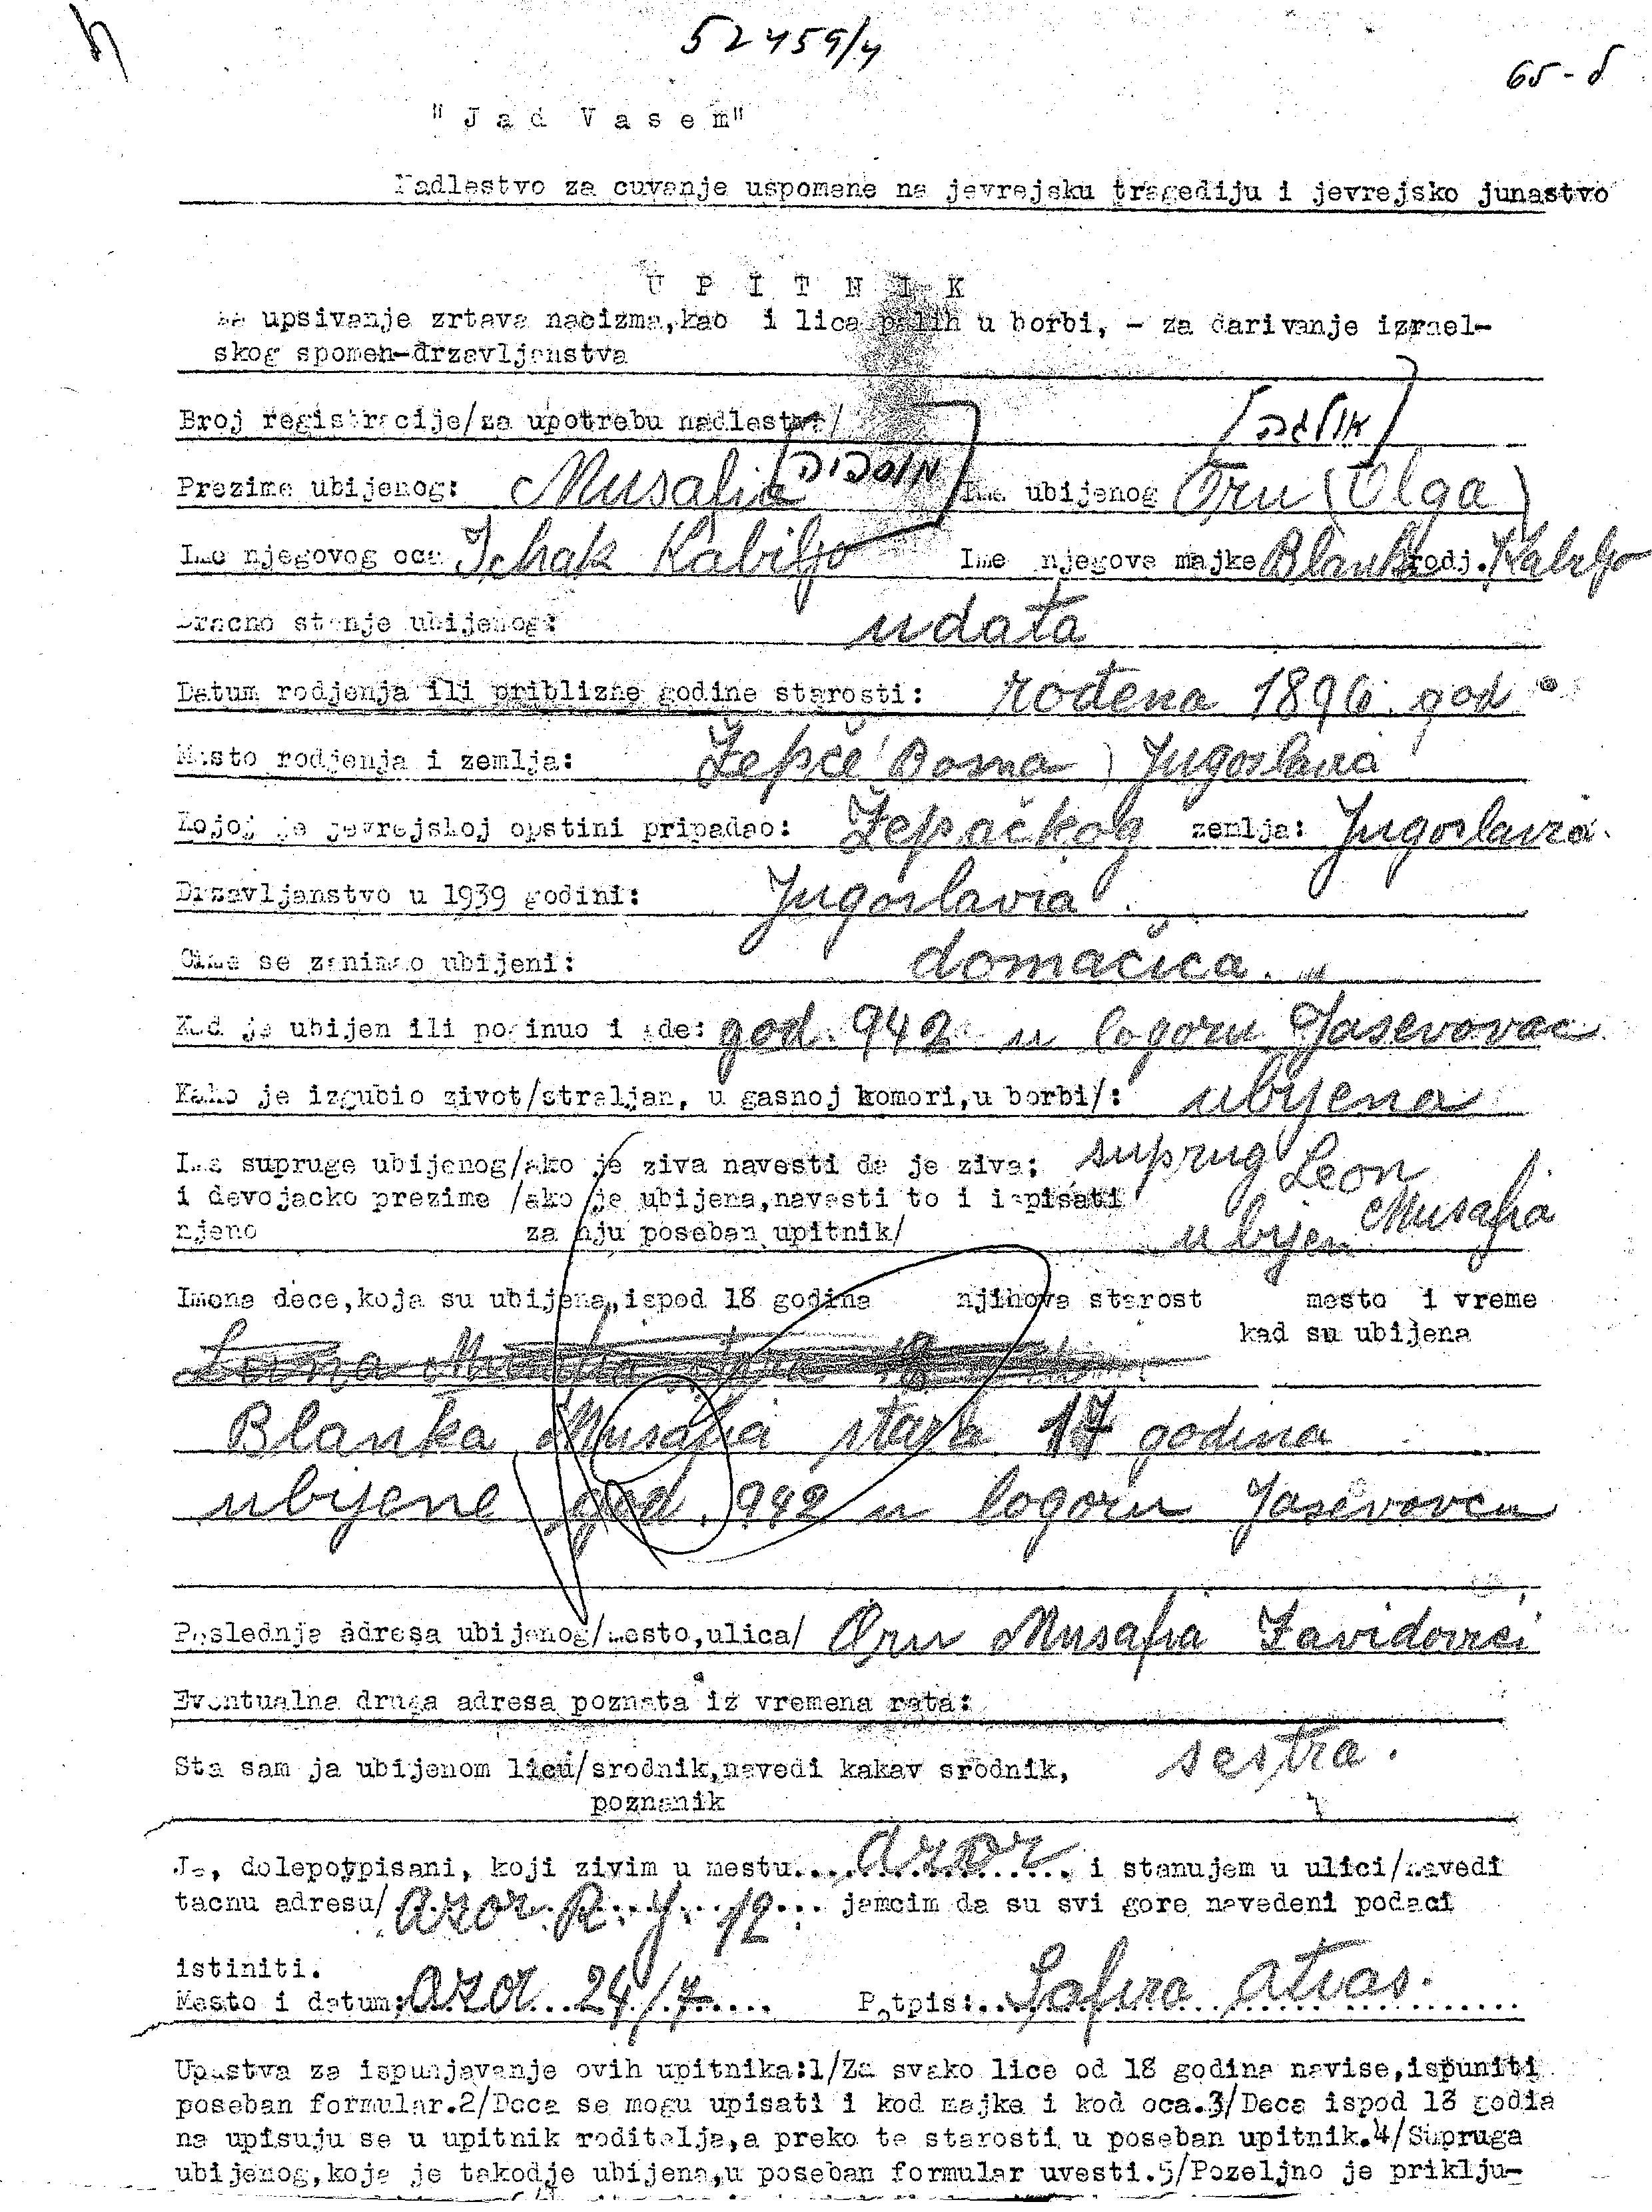 52459/4
65-δ
"Jad Vasem"
Nadlestvo za cuvanje uspomene na jevrejsku tragediju i jevrejsko junastvo
UPITNIK
za upsivanje zrtava nacizma,kao i lica palih u borbi, - za darivanje izrael-
skog spomen-drzavljanstva
Broj registracije/za upotrebu nadlestva/ [אולגה]
Prezime ubijenog: Musafia [מוספיה] Ime ubijenog Oru (Olga)
Ime njegovog oca Ichak Kabiljo Ime njegove majke Blanka rodj. Kabiljo
Bracno stanje ubijenog: udata
Datum rodjenja ili priblizne godine starosti: rođena 1896. god.
Mesto rodjenja i zemlja: Žepče (Bosna) Jugoslavia
Kojoj je jevrejskoj opstini pripadao: Žepačkog zemlja: Jugoslavia.
Drzavljanstvo u 1939 godini: Jugoslavia.
Cime se zanimao ubijeni: domaćica.
Kad je ubijen ili poginuo i gde: god. 942 u logoru Jasevovac
Kako je izgubio zivot/streljan, u gasnoj komori,u borbi/: ubijena
Ime supruge ubijenog/ako je ziva navesti da je ziva: suprug Leon
i devojacko prezime /ako je ubijena,navesti to i ispisati Musafia
njeno za nju poseban upitnik/ ubijen
Imena dece,koja su ubijena,ispod 18 godina njihova starost mesto i vreme
kad su ubijena
Blanka Musafia stara 17 godina
ubijene god. 942 u logoru Jasevovcu
Poslednja adresa ubijenog/mesto,ulica/ Oru Musafia Zavidovići
Eventualna druga adresa poznata iz vremena rata:
Sta sam ja ubijenom licu/srodnik,navedi kakav srodnik, sestra.
poznanik
Ja, dolepotpisani, koji zivim u mestu....azor.... i stanujem u ulici/navedi
tacnu adresu/ azor R. J. 12 ... jamcim da su svi gore navedeni podaci
istiniti.
Mesto i datum: azor 24/7..... Potpis:..Safira Atias.
Upustva za ispunjavanje ovih upitnika:1/Za svako lice od 18 godina navise,ispuniti
poseban formular.2/Deca se mogu upisati i kod majke i kod oca.3/Deca ispod 18 godia
na upisuju se u upitnik roditelja,a preko te starosti u poseban upitnik.4/Supruga
ubijenog,koja je takodje ubijena,u poseban formular uvesti.5/Pozeljno je priklju-